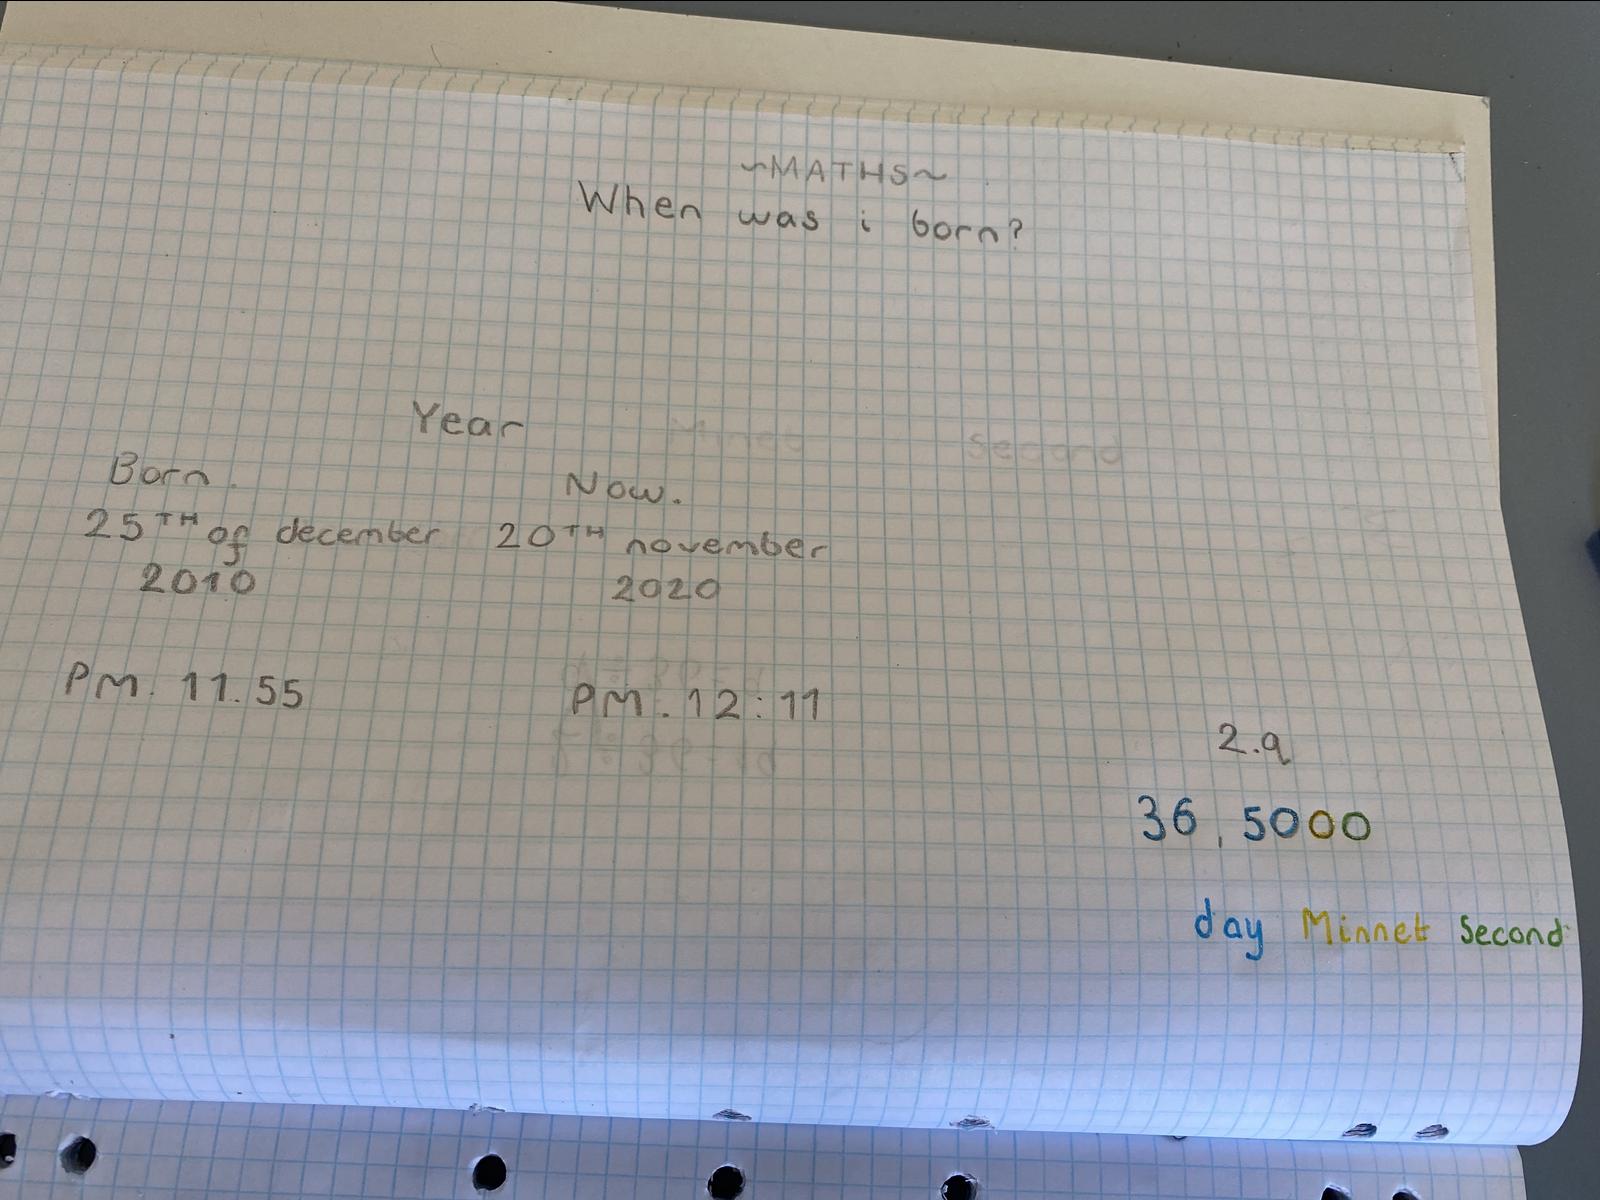 ~MATHS~
When was i born?
Year
Minet
Second
Born.
Now.
25TH of december
2010
20TH november
2020
PM. 11.55
PM. 12:11
2.9
36,5000
day Minnet Second